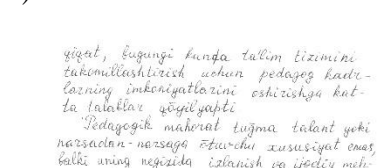 qiqat, bugungi kunda ta'lim tizimini
takomillashtirish uchun pedagog kadr-
larning imkoniyatlarini oshirishga kat-
ta talablar qo'yilyapti
Pedagogik mahorat tug'ma talant yoki
narsadan-narsaga o'tuvchi xususiyat emas,
balki uning negizida izlanish va ijodiy meh-